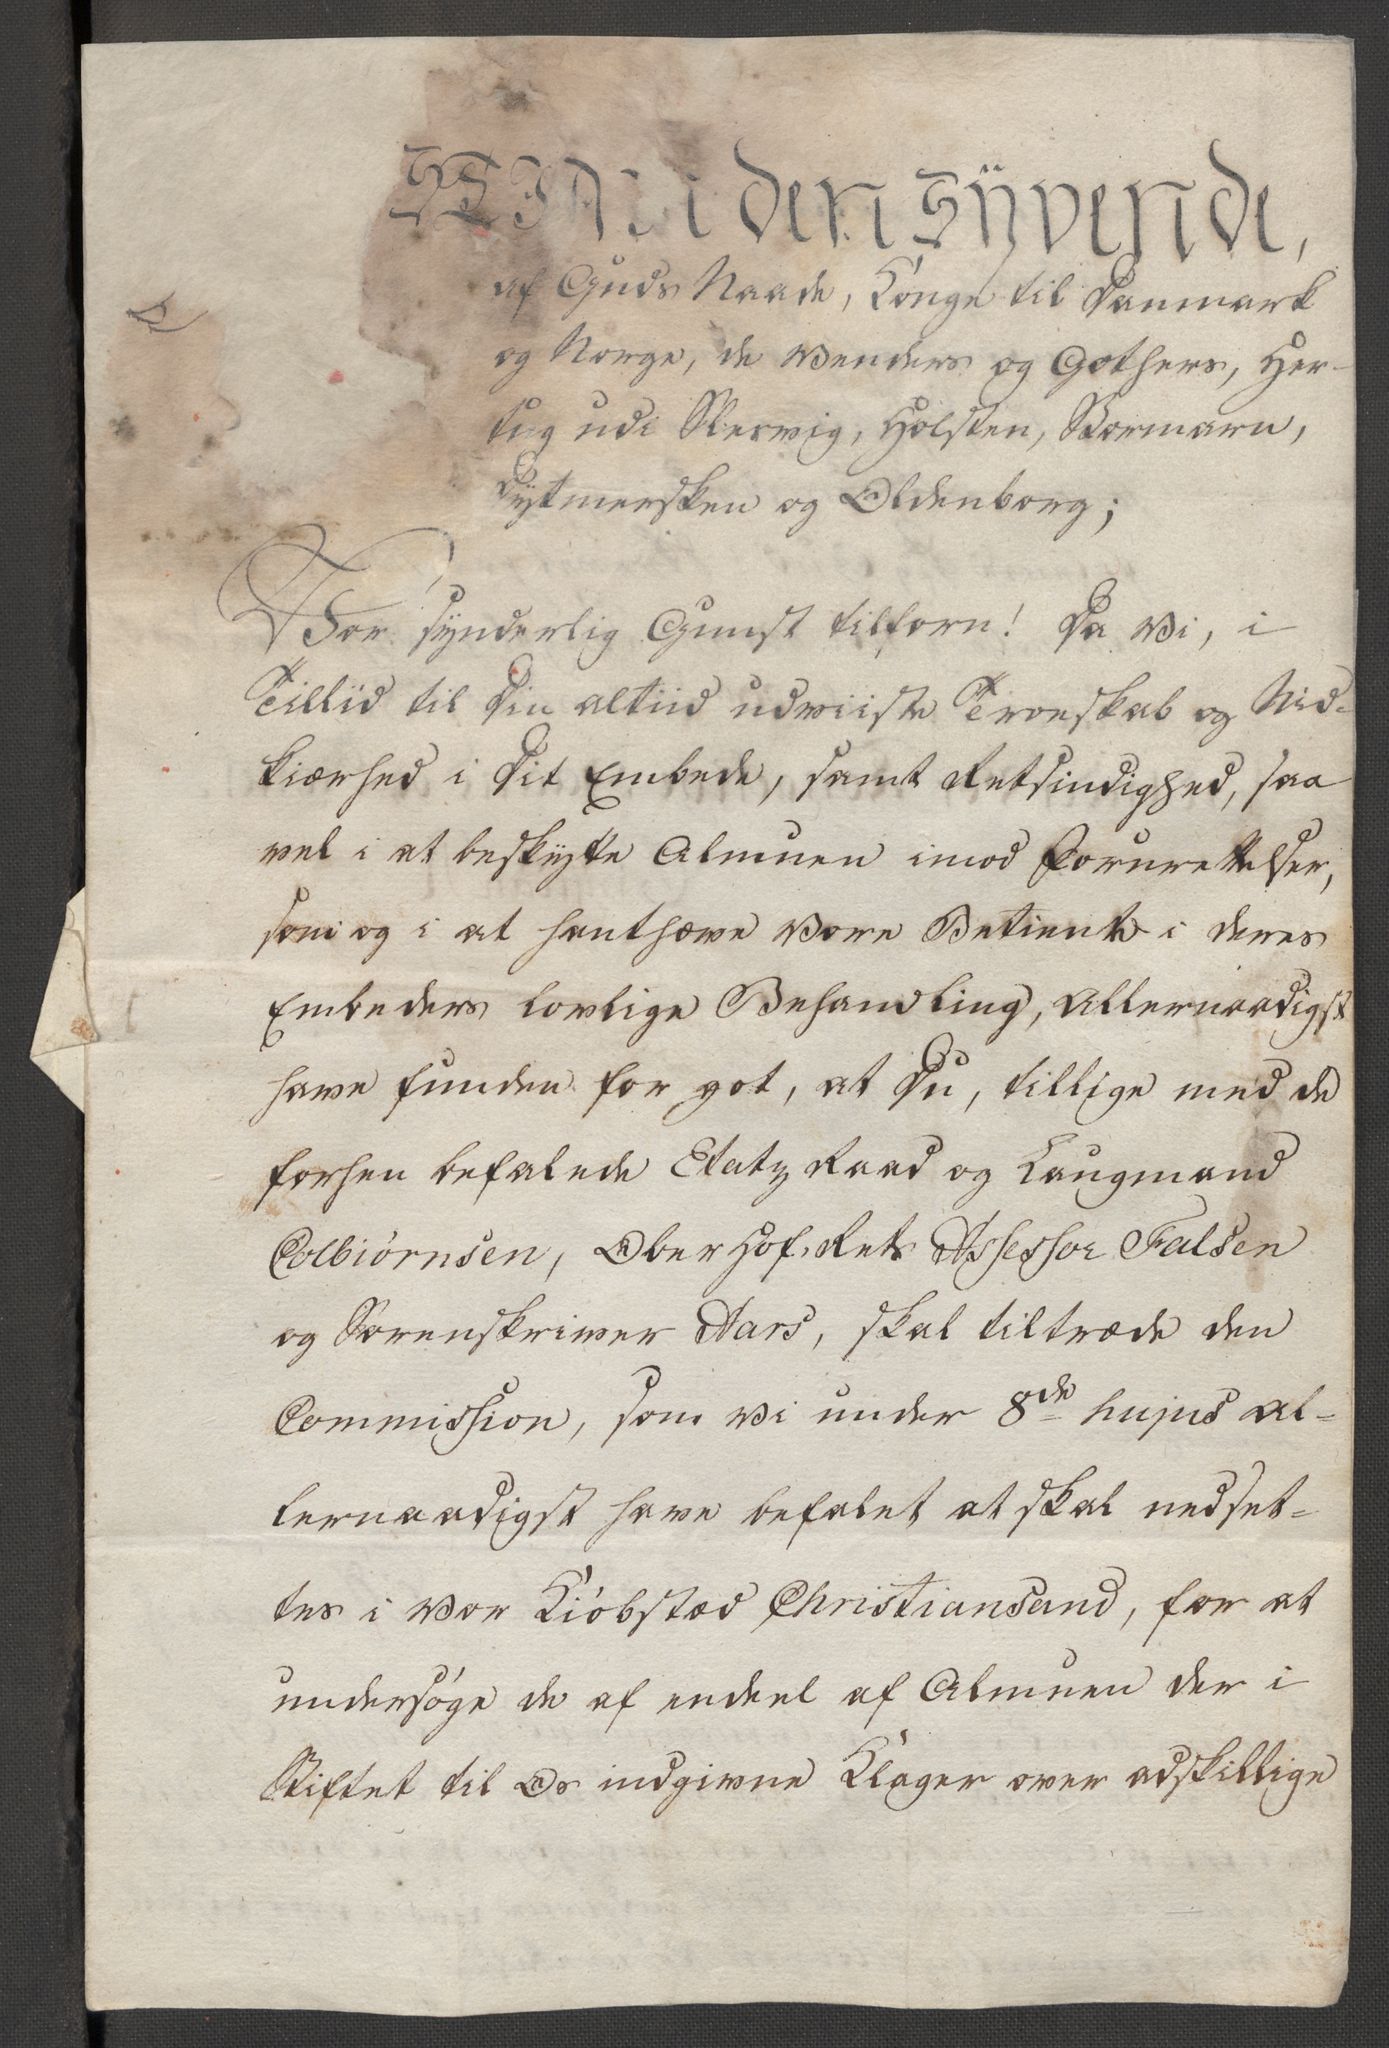 den Syvende,
af Guds Naade, Konge til Danmark
og Norge, de Venders og Gothers, Her-
tug udi Slesvig, Holsten, Stormarn,
Dytmersken og Oldenborg;
Vor synderlig Gunst tilforn! Da Vi, i
Tillid til Din altiid udviiste Troeskab og Nid-
kiærhed i Dit Embede, samt Retsindighed, saa
vel i at beskytte Almuen imod Forurettelser,
som og i at hanthæve Vore Betiente i deres
Embeders lovlige Behandling, Allernaadigst
have funden for got, at Du, tillige med de
forhen befalede Etatz Raad og Laugmand
Colbiörnsen, OberHof-Rets Assessor Falsen
og Sorenskriver Aars, skal tiltræde den
Commission, som Vi under 8de hujus al-
lernaadigst have befalet at skal nedset-
tes i Vor Kiöbstæd Christiansand, for at
undersöge de af endeel af Almuen der i
Stiftet til Os indgivne Klager over adskillige